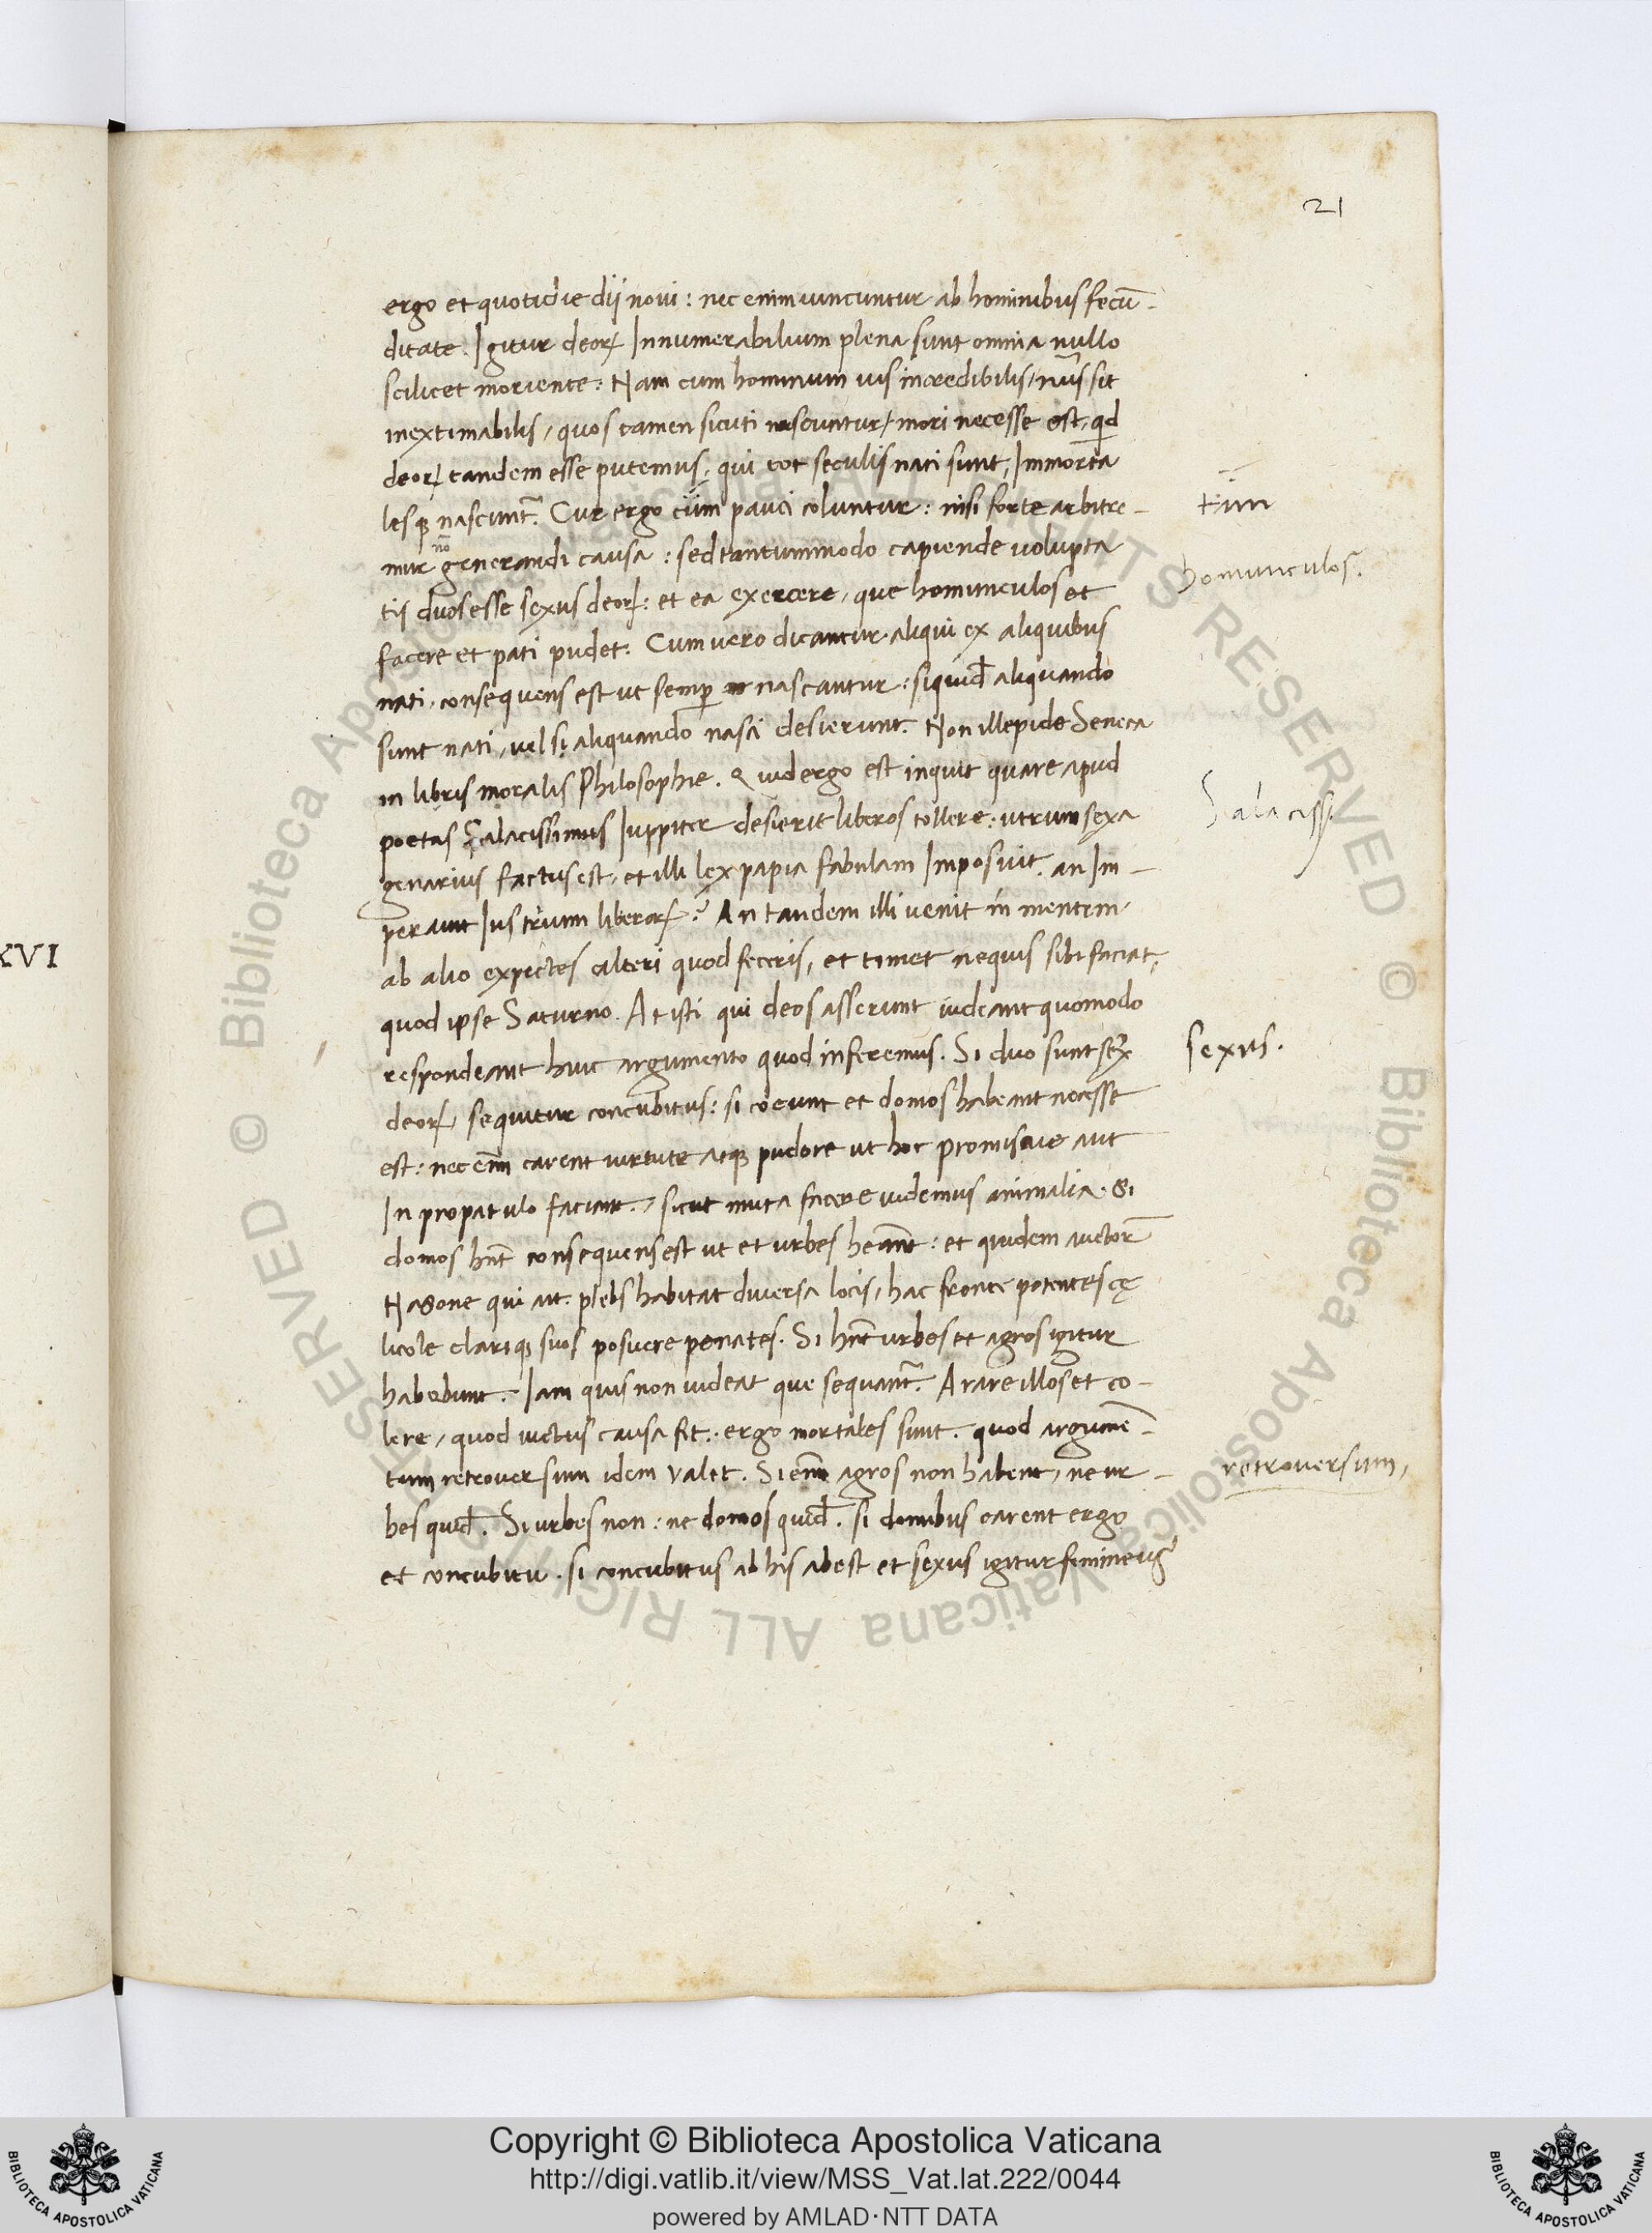 21
ergo et quotidie dij noui : nec enim uincuntur ab hominibus fecū-
ditate. Igitur deoꝝ Innumerabilium plena sunt omnia nullo
scilicet moriente : Nam cum hominum uis incredibilis / nūs sit
inextimabilis / quos tamen sicuti nascuntur / mori necesse est, qd
deoꝝ tandem esse putemus, qui tot seculis nati sunt, Immorta
lesqꝫ nascunt̄. Cur ergo tam pauci coluntur : nisi forte arbitre-
mur nō generandi causa : sed tantummodo capiende uolupta
tis duos esse sexus deoꝝ : et ea exercere, que homunculos et
facere et pati pudet. Cum uero dicantur aliqui ex aliquibus
nati, consequens est ut semꝑ nascantur : siquid̄ aliquando
sunt nati, uel si aliquando nasci desierunt. Non illepide Seneca
in libris moralis Philosophie. Quid ergo est inquit quare apud
poetas Salacissimus Iuppiter desierit liberos tollere : utrum sexa
genarius factus est, et illi lex papia fabulam Imposuit. an Im-
perauit Ius trium liberoꝝ? An tandem illi uenit in mentem,
ab alio expectes alteri quod feceris, et timet nequis sibi faciat,
quod ipse Saturno. At isti qui deos asserunt uideant quomodo
respondeant huic argumento quod inferemus. Si duo sunt sex̄
deoꝝ, sequitur concubitus : si coeunt et domos habeant necesse
est : nec enī carent uirtute atqꝫ pudore ut hoc promiscue aut
In propatulo faciant, sicut muta facere uidemus animalia. Si
domos hn̄t consequens est ut et urbes heānt : et quidem auctor̄
Nasone qui ait. plebs habitat diuersa locis, hac fronte potentes cę
licole clariqꝫ suos posuere penates. Si hn̄t urbes et agros igitur
habebunt. Iam quis non uideat que sequant̄. Arare illos et co-
lere, quod uictus causa fit : ergo mortales sunt. quod argumē-
tum retrouersum idem valet. Si enī agros non habent, ne ur-
bes quid̄. Si urbes non : ne domos quid̄. si domibus carent ergo
et concubitu. si concubitus ab his abest et sexus igitur femineus
homunculos.
Salaciss
sexus.
retrouersum,
XVI
© Biblioteca Apostolica Vaticana ALL RIGHTS RESERVED © Biblioteca Apostolica Vaticana ALL RIGHTS RESERVED
BIBLIOTECA APOSTOLICA VATICANA
Copyright © Biblioteca Apostolica Vaticana
http://digi.vatlib.it/view/MSS_Vat.lat.222/0044
powered by AMLAD·NTT DATA
BIBLIOTECA APOSTOLICA VATICANA